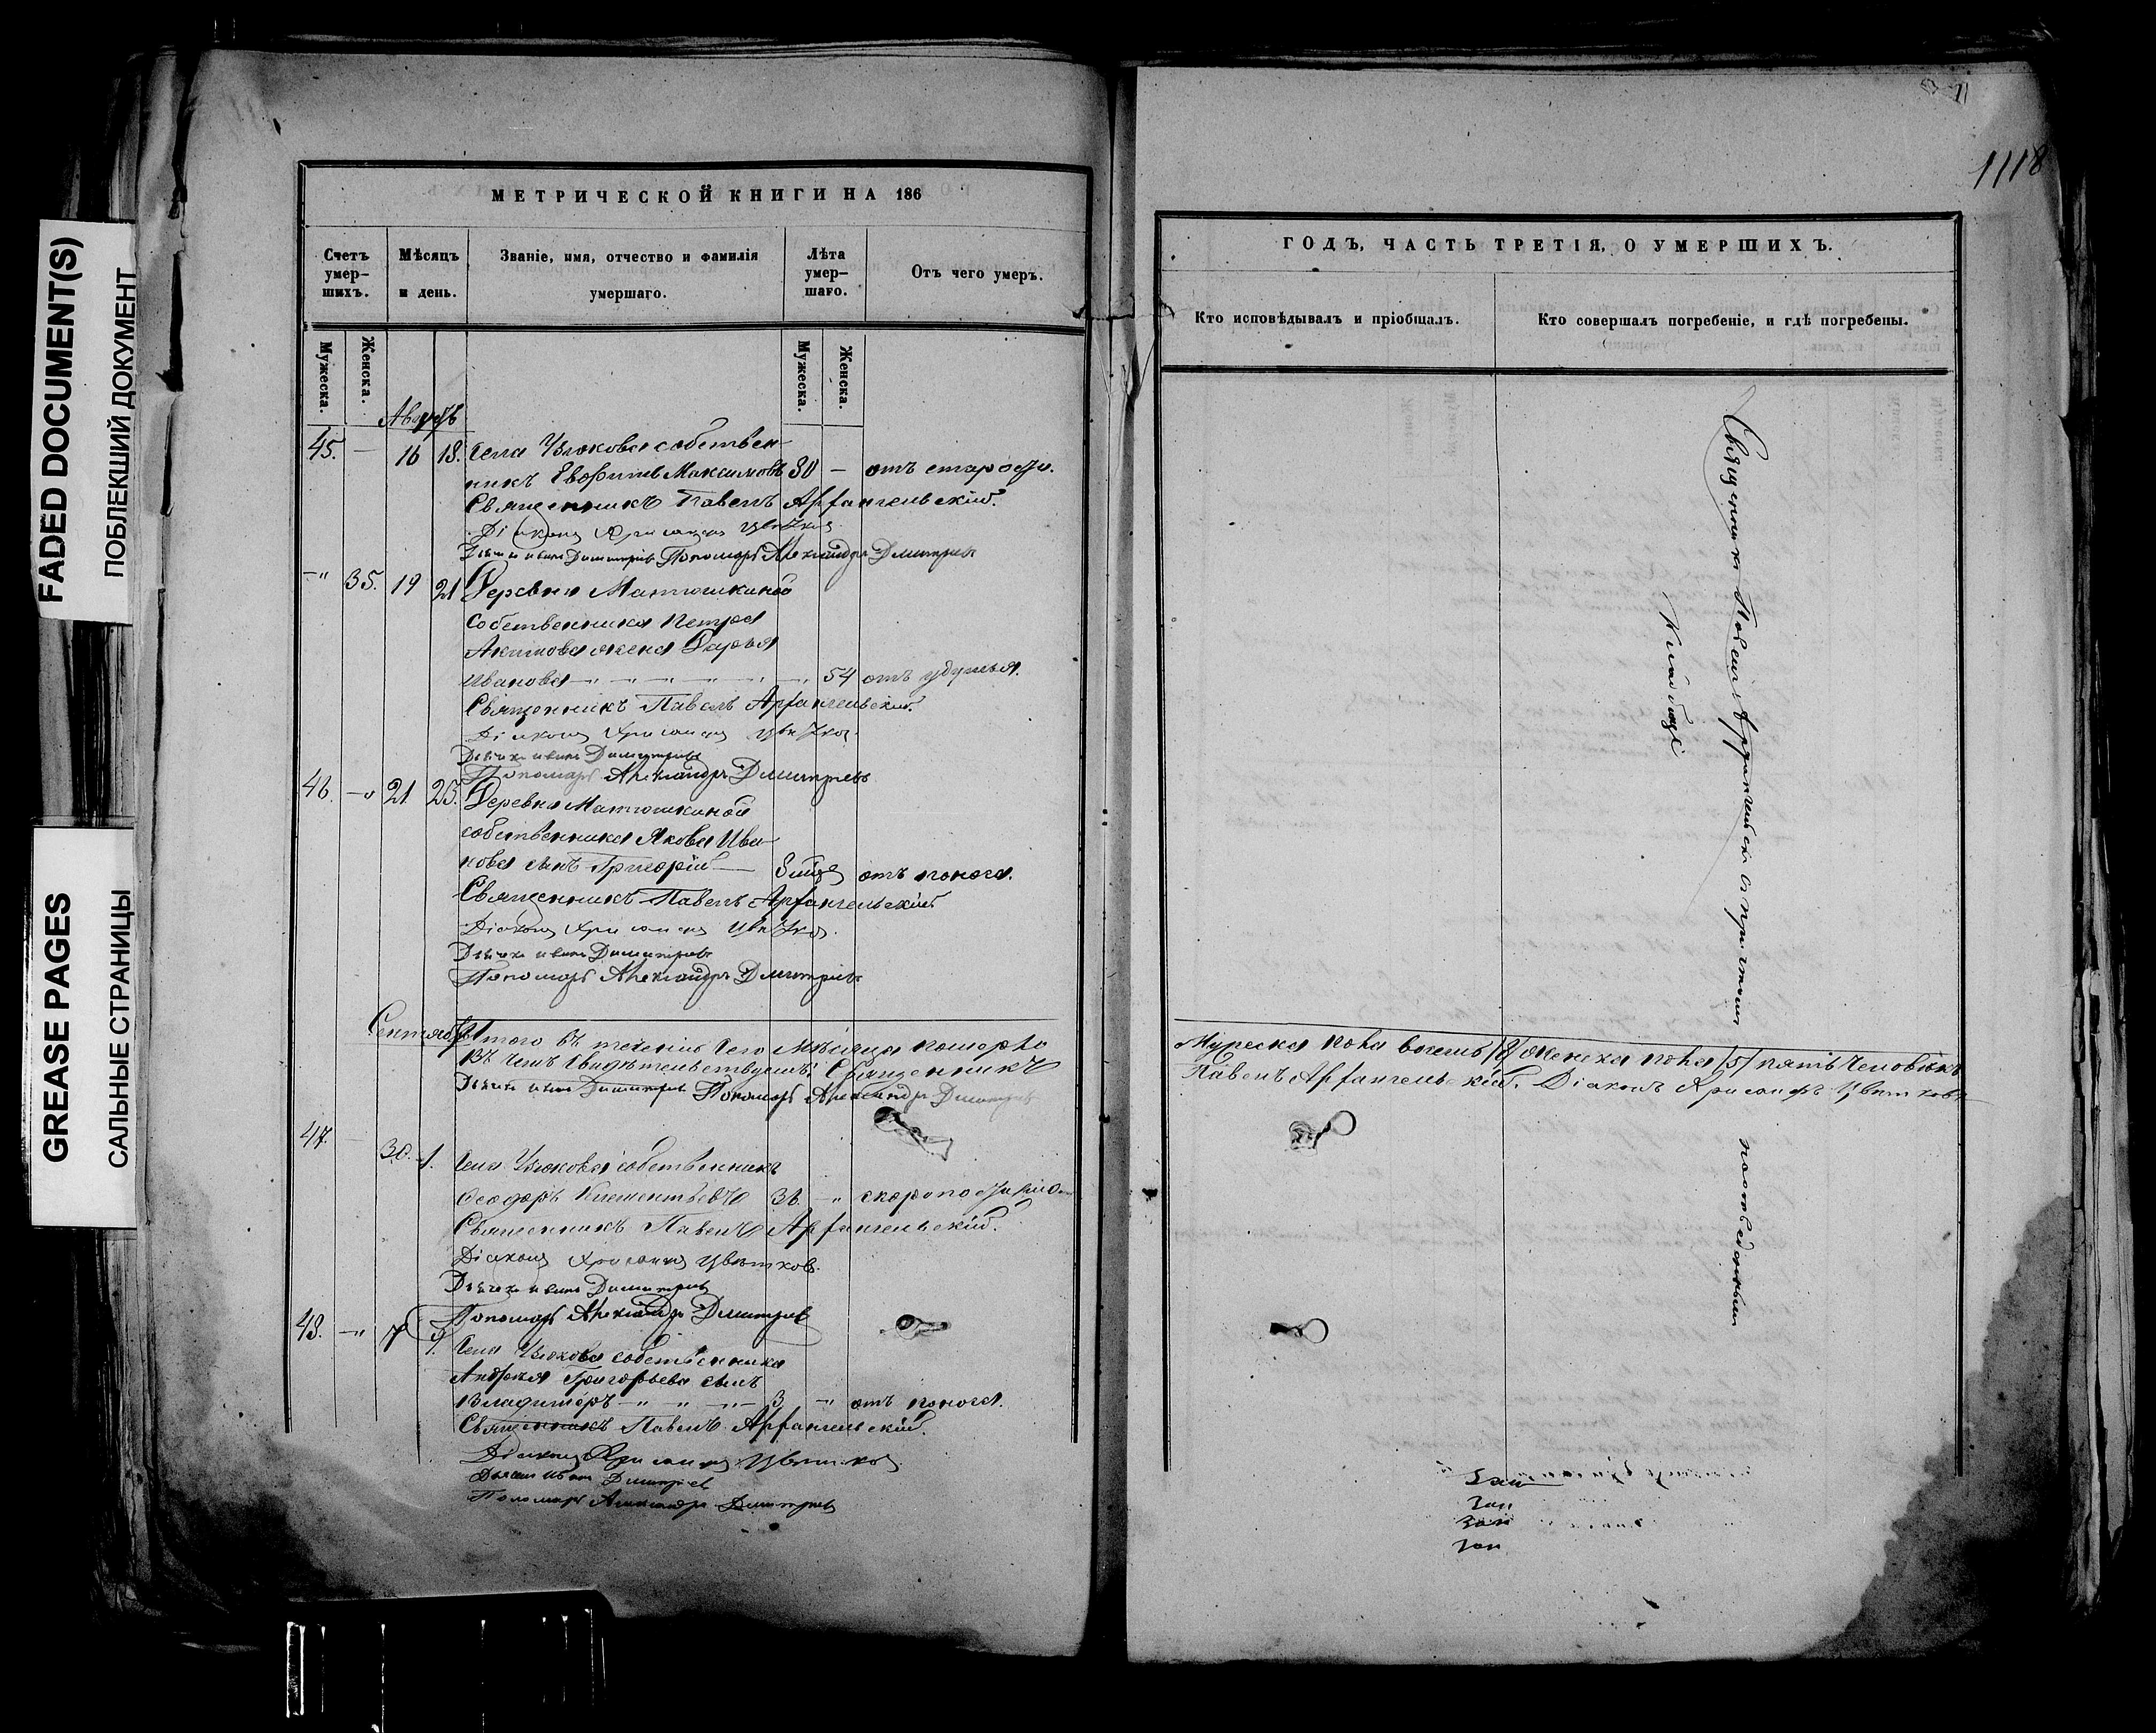 FADED DOCUMENT(S)
ПОБЛЕКШИЙ ДОКУМЕНТ
GREASE PAGES
САЛЬНЫЕ СТРАНИЦЫ
МЕТРИЧЕСКОЙ КНИГИ НА 186
Счетъ умер-шихъ.
Мѣсяцъ и день.
Званіе, имя, отчество и фамилія умершаго.
Лѣта умер-шаго.
Отъ чего умеръ.
Мужеска.
Женска.
Мужеска.
Женска.
Августъ
45. — 16 18. Села Узюкова собствен-
никъ Максимовъ 80 — отъ старости.
Священникъ Павелъ Архангельскій.
Діаконъ Хрисанфъ Цвѣтков
Дьячекъ Иванъ Димитріевъ Пономарь Александръ Димитріевъ
—" 35. 19 21 Деревни Матюшкиной
собственника Петра
Акимова жена Дарья
Иванова —"—"—"— 54 отъ удушья.
Священникъ Павелъ Архангельскій.
Діаконъ Хрисанфъ Цвѣтков
Дьячекъ Иванъ Димитріевъ
Пономарь Александръ Димитріевъ
46. —" 21 23. Деревни Матюшкиной
собственника Якова Ива-
нова сынъ Григорій — отъ поноса.
Священникъ Павелъ Архангельскій
Діаконъ Хрисанфъ Цвѣтков
Дьячекъ Иванъ Димитріевъ
Пономарь Александръ Димитріевъ
Сентябрь
Итого въ теченіи сего мѣсяца померло
Въ чемъ свидѣтельствуемъ: Священникъ
Дьячекъ Иванъ Димитріевъ Пономарь Александръ Димитріевъ
47. 30. 1. Села Узюкова собственникъ
Ѳеодоръ Климентьевъ — " скоропостижно
Священникъ Павелъ Архангельскій.
Діаконъ Хрисанфъ Цвѣтков.
Дьячекъ Иванъ Димитріевъ
Пономарь Александръ Димитріевъ
48. —" 7 9. Села Узюкова собственника
Андрея Григорьева сынъ
Владимеръ —"—"— 3 —" отъ поноса.
Священникъ Павелъ Архангельскій.
Діаконъ Хрисанфъ Цвѣтков
Дьячекъ Иванъ Димитріев
Пономарь Александръ Димитріевъ
1118
ГОДЪ, ЧАСТЬ ТРЕТІЯ, О УМЕРШИХЪ.
Кто исповѣдывалъ и пріобщалъ.
Кто совершалъ погребеніе, и гдѣ погребены.
Священникъ Павелъ Архангельскій съ причтомъ
на
кладбищѣ
Мужеска пола восемь /8/ женска пола /5/ пять человѣкъ
Павелъ Архангельскій. Діаконъ Хрисанфъ Цвѣтковъ